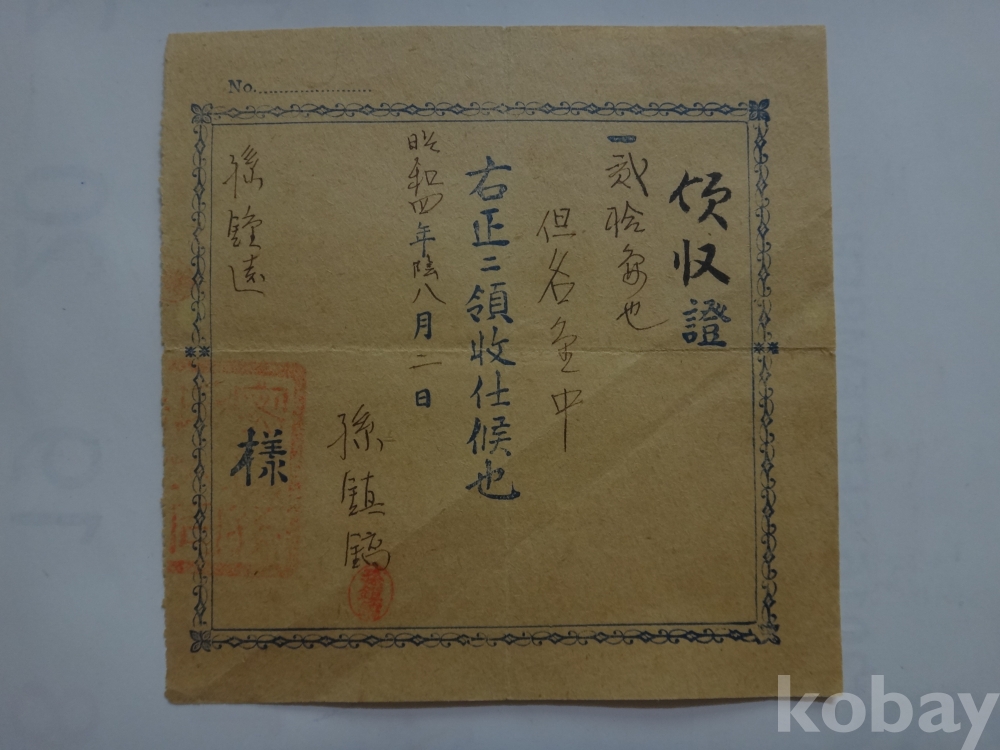 No.
領収證
一貳拾矣也
但名金中
右正ニ領收仕候也
昭和四年陰八月二日
孫鎮鎬
孫鍾遠
樣
kobay